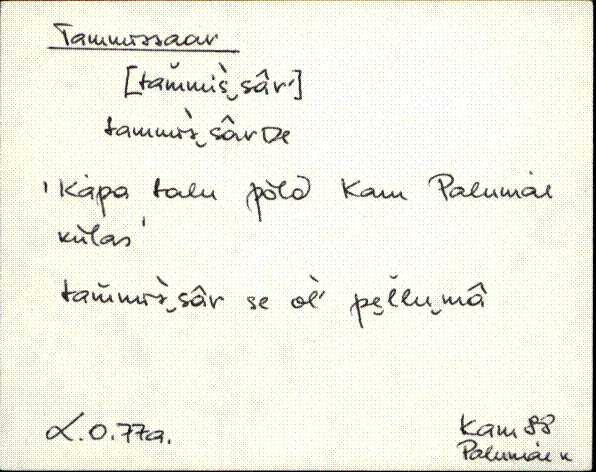 Tammissaar
[tam̆mis̀‿sâr']
tammis̀‿sârDe
'Kàpa talu põld Kam Palumäe
külas'
tam̆mis̀‿sâr se ol̀' pe̮l̆lu‿mâ
L.O.77a.
Kam 88
Palumäe k